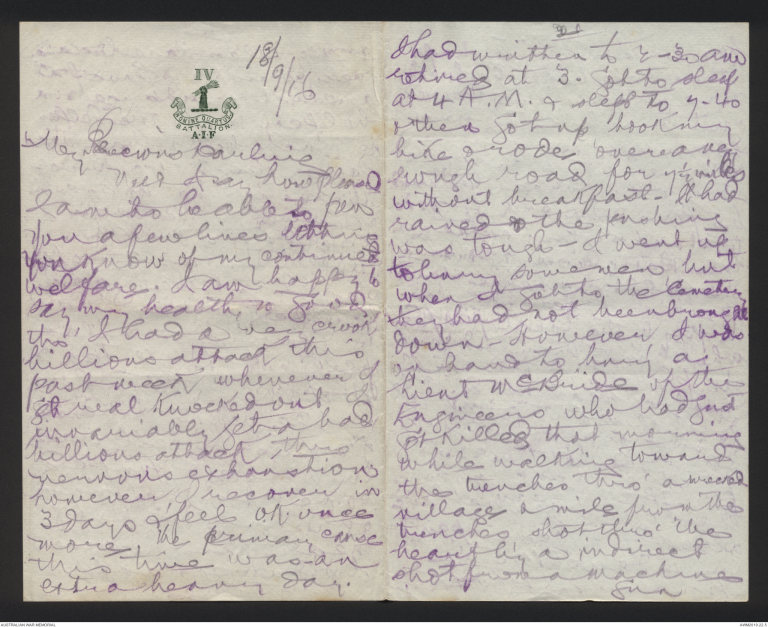 18/9/16
IV
MACHINE GUN COY
BATTALION
A·I·F
My Precious Pauline
Just to say how pleased
I am to be able to pen
you a few lines letting
you know of my continued
welfare. I am happy to
say my health is good
tho' I had a very crook
billious attack this
past week whenever I
get real knocked out I
invariably get a bad
billious attack thro
nervous exhaustion
however I recover in
3 days & feel OK once
more. The primary cause
this time was an
extra heavy day.
I had written to 2-30 and
retired at 3. got to sleep
at 4 A.M. & slept to 7-40
& then got up took my
bike & rode over a
rough road for 7½ miles
without breakfast - It had
rained & the pushing
was tough - I went up
to bury some men but
when I got to the Cemetery
they had not been brought
down - However I was
on hand to bury a
Lieut McBride of the
Engineers who had just
got killed that morning
while walking toward
the trenches thro' a wrecked
village a mile from the
trenches shot thro' the
heart by a indirect
shot from a machine
gun
AUSTRALIAN WAR MEMORIAL
AWM2019.22.5